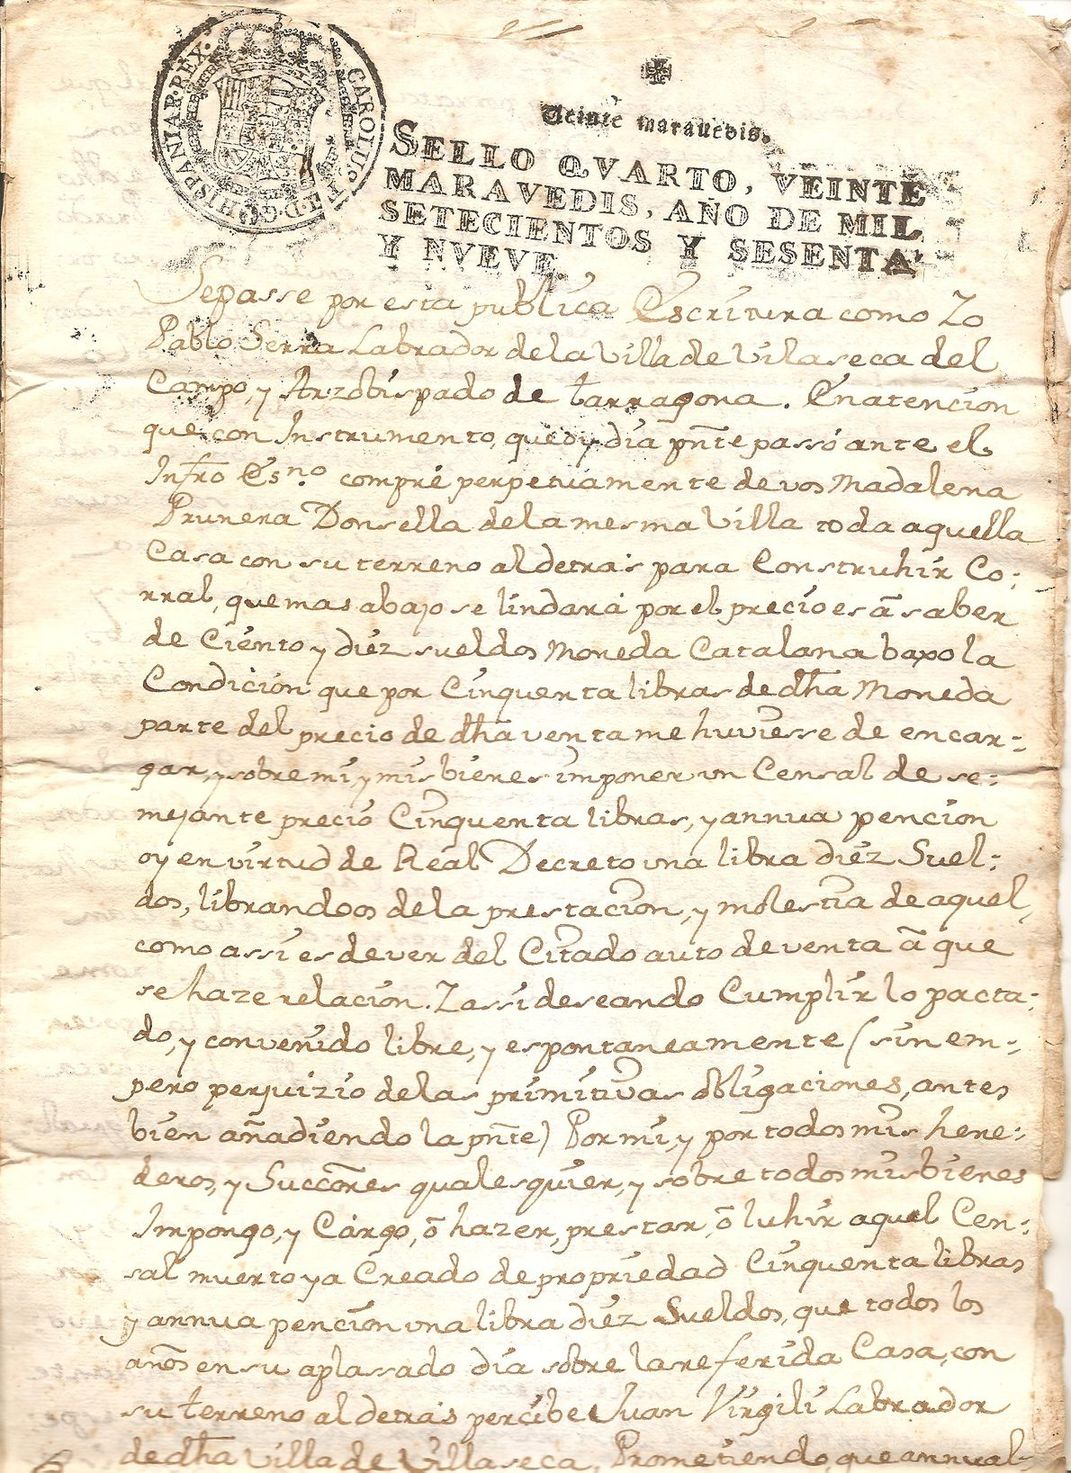 CAROLUS D.G. HISPANIAR. REX.
Veinte maravedis.
SELLO QVARTO, VEINTE
MARAVEDIS, AÑO DE MIL
SETECIENTOS Y SESENTA
Y NVEVE.
Sepasse por esta publica Escritura como Yo
Pablo Serra Labrador de la Villa de Vilaseca del
Campo, y Arzobispado de tarragona. En atencion
que con Instrumento, que oy dia pñte passó ante el
Infro Esno. compré perpetuamente de vos Madalena
Prunera Donsella de la mesma Villa toda aquella
Casa con su terreno al detras para Construhir Co:
rral, que mas abajo se lindará por el precio es â saber
de Ciento y diez sueldos Moneda Catalana baxo la
Condicion que por Cinquenta libras de dha Moneda
parte del precio de dha venta me huviesse de encar:
gar, y sobre mi, y mis bienes imponer un Censal de se:
mejante precio Cinquenta libras, y annua pencion
oy en virtud de Real Decreto una libra diez Suel:
dos, librandoos de la prestacion, y molestia de aquel,
como assi es de ver del Citado auto de venta â que
se haze relacion. Y assi deseando Cumplir lo pacta:
do, y convenido libre, y espontaneamente (sin em:
pero perjuizio de las primitivas obligaciones, antes
bien añadiendo la pñte) Por mi, y por todos mis here:
deros, y Succores qualesquier, y sobre todos mis bienes
Impongo, y Cargo, ô hazer, prestar, ô luhir aquel Cen:
sal muerto ya Creado de propriedad Cinquenta libras
y annua pencion una libra diez Sueldos, que todos los
años en su aplassado dia sobre la referida Casa, con
su terreno al detras percibe Juan Virgili Labrador
de dha Villa de Villaseca. Prometiendo, que annual-